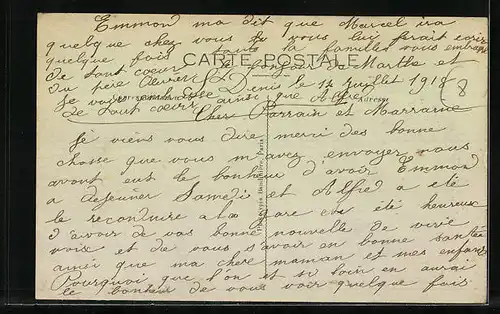 Emmond ma dit que Marcel ira
quelque chez vous tu vous lui ferait ecrire
quelque fois toute la familles vous embrasse
CARTE POSTALE
de tout coeur le bonjour da Marthe et
du père
St Denis le 14 juillet 1918
Je vous embrasse
de tout coeur ainsi que Alfred
Adresse
8
Cher Parrain et Marraine
Je viens vous dire merci des bonne
chose que vous m avez envoyer nous
avont eut le bonheur d'avoir Emmond
a dejeuner Samedi et Alfred a eté
le reconduire a la gare ete heureux
d'avoir de vos bonne nouvelle de vivie
voix et de vous s'avoir en bonne santée
ainsi que ma chere maman et mes enfants
Pourquoi que l'on et si loin en aurai
le bonheur de vous voir quelque fois
Paris